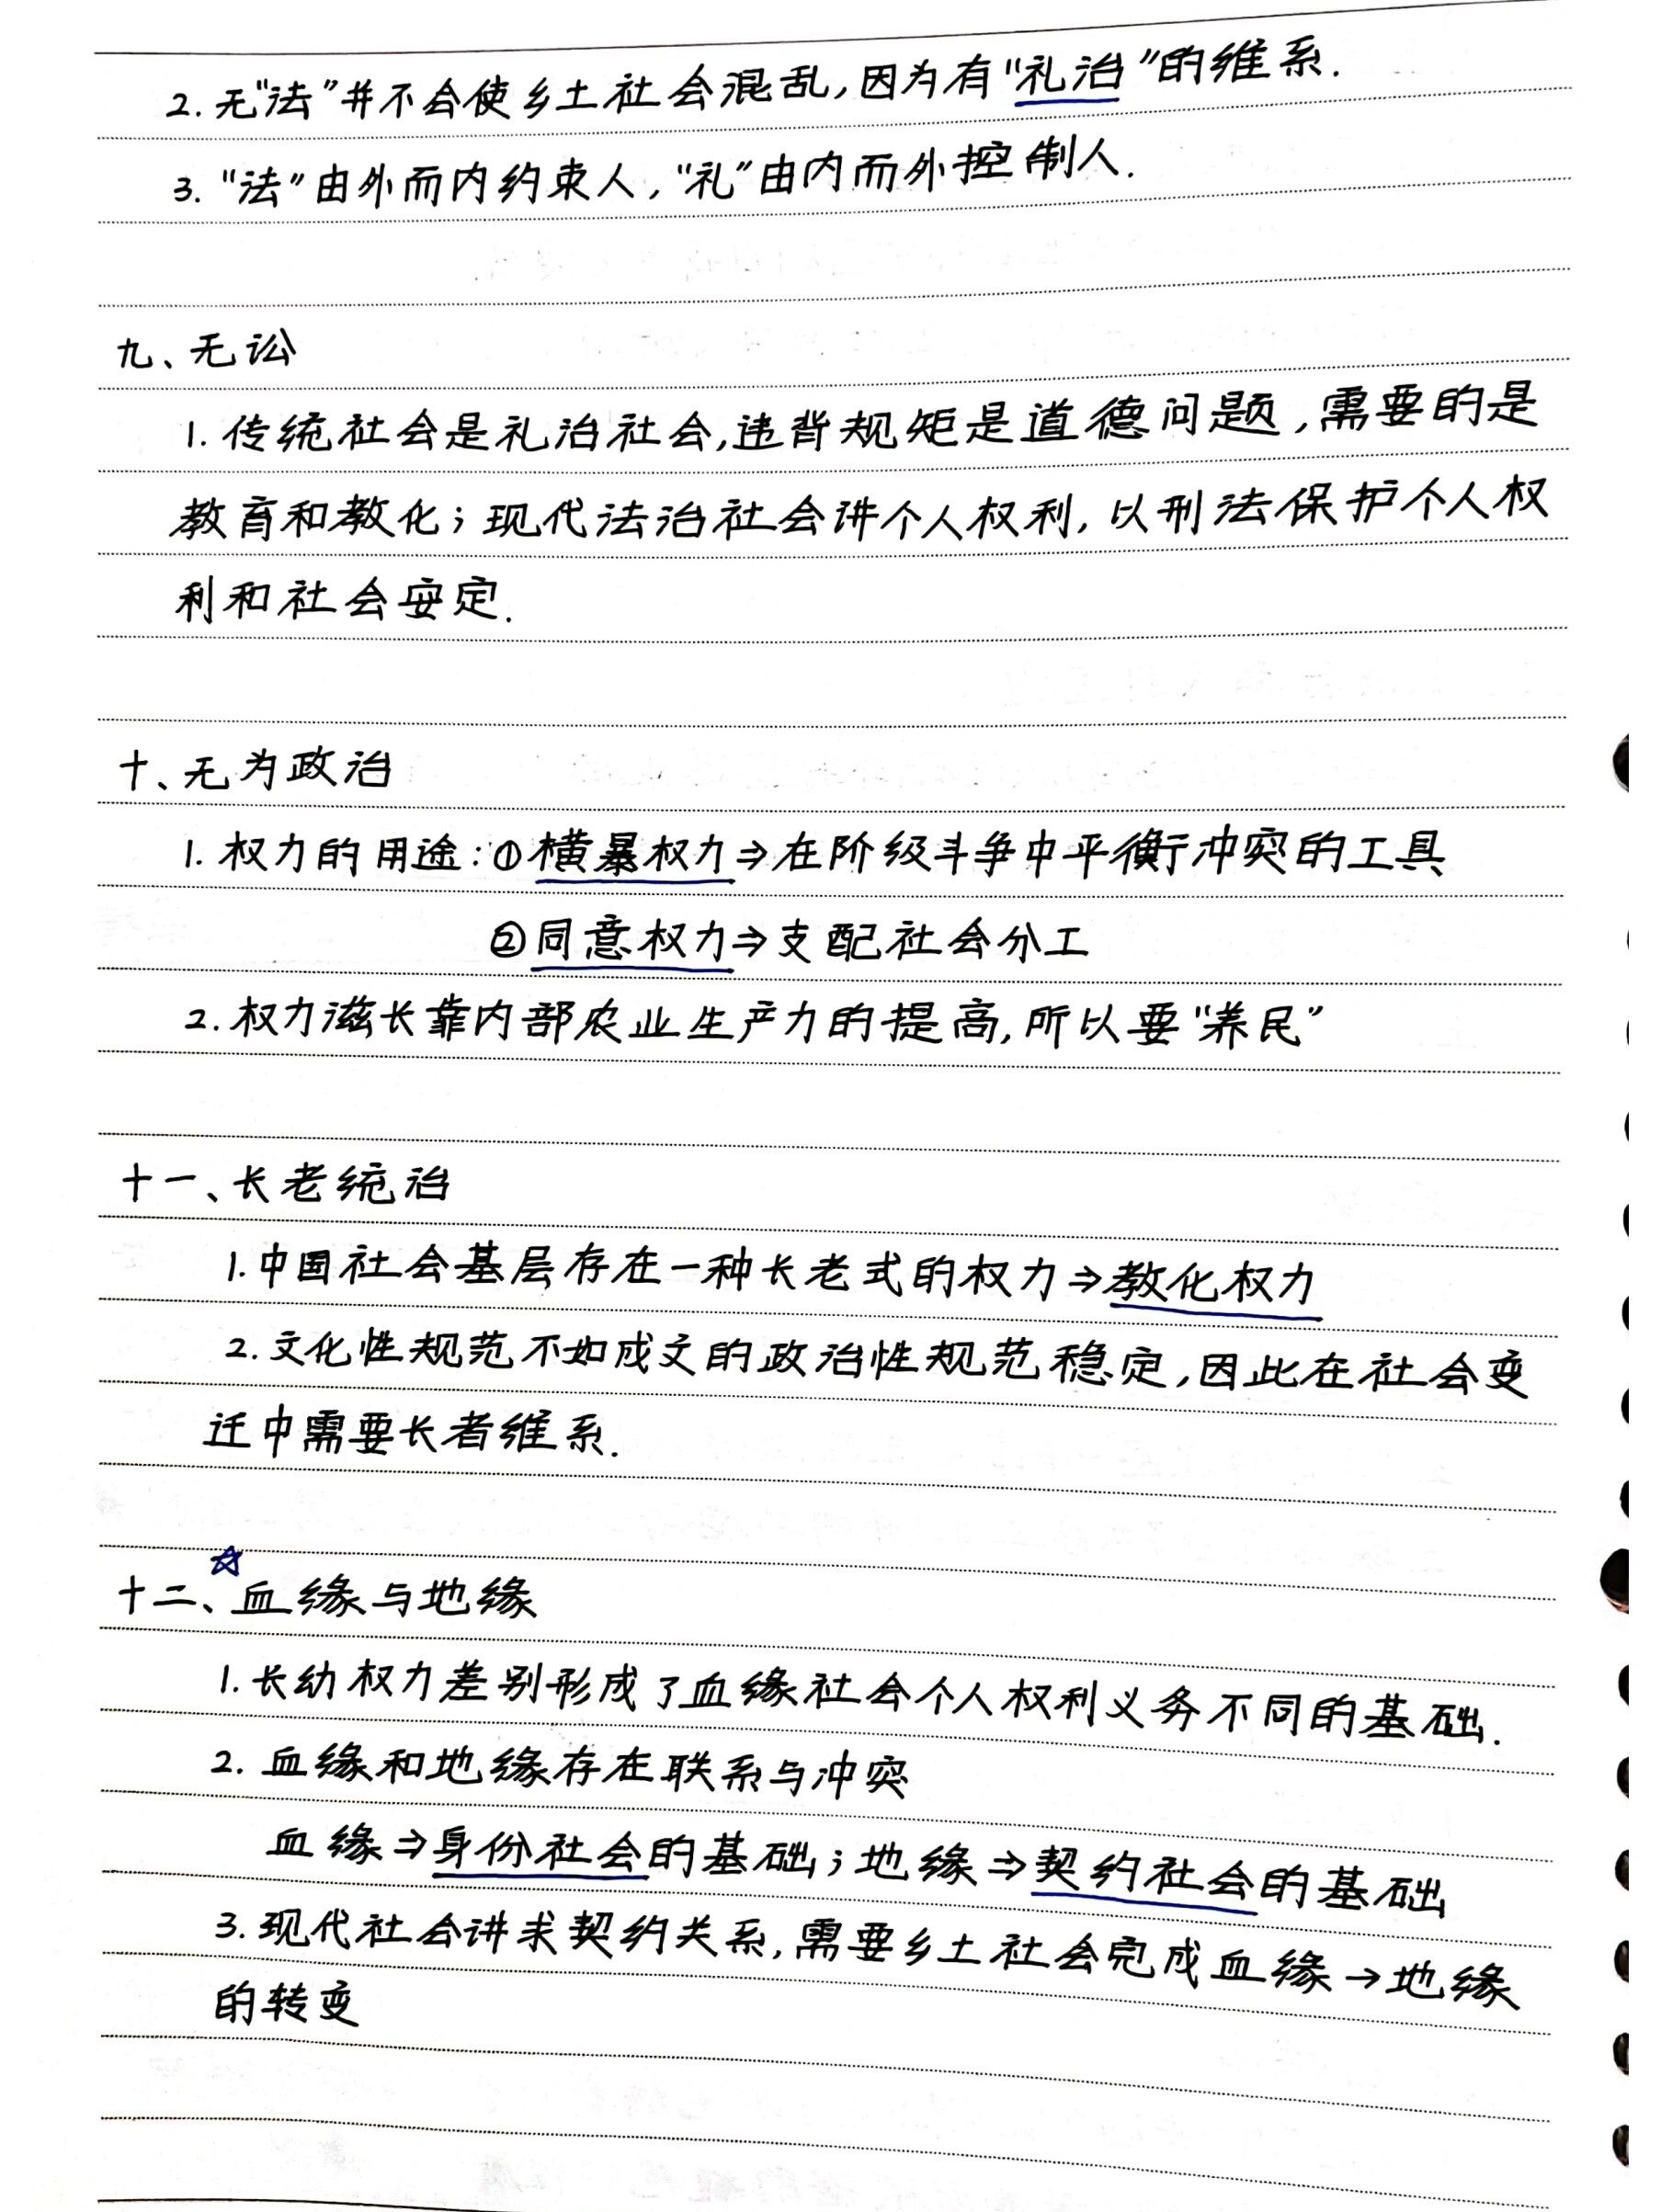 2. 无“法”并不会使乡土社会混乱,因为有“礼治”的维系.
3. “法”由外而内约束人,“礼”由内而外控制人.
九、无讼
1. 传统社会是礼治社会,违背规矩是道德问题,需要的是
教育和教化;现代法治社会讲个人权利,以刑法保护个人权
利和社会安定.
十、无为政治
1. 权力的用途:①横暴权力⇒在阶级斗争中平衡冲突的工具
②同意权力⇒支配社会分工
2. 权力滋长靠内部农业生产力的提高,所以要“养民”
十一、长老统治
1.中国社会基层存在一种长老式的权力⇒教化权力
2.文化性规范不如成文的政治性规范稳定,因此在社会变
迁中需要长者维系.
十二、☆血缘与地缘
1.长幼权力差别形成了血缘社会个人权利义务不同的基础.
2. 血缘和地缘存在联系与冲突
血缘⇒身份社会的基础;地缘⇒契约社会的基础
3.现代社会讲求契约关系,需要乡土社会完成血缘→地缘
的转变